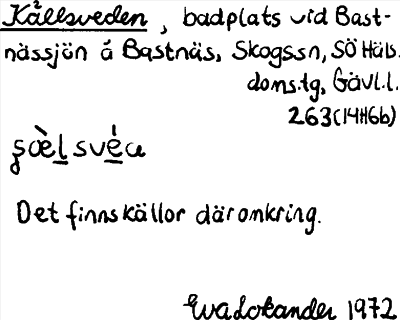 Källsveden, badplats vid Bast-
nässjön å Bastnäs, Skogssn, SÖ Häls.
doms.tg, Gävl.l.
263(14H6b)
Det finns källor där omkring.
Eva Lokander 1972